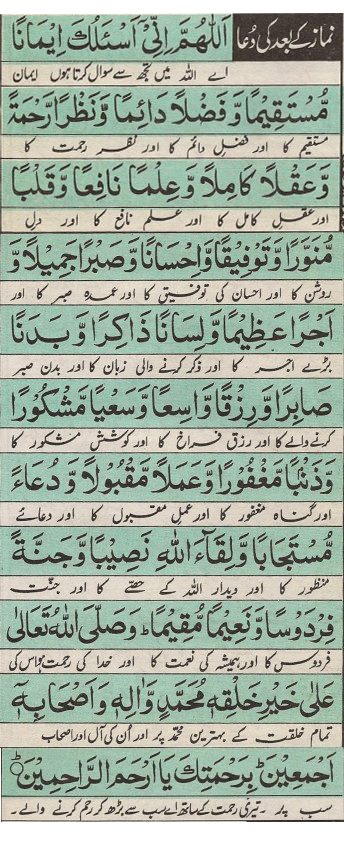 نماز کے بعد کی دُعا
اَللّٰهُمَّ اِنِّیْ اَسْئَلُكَ اِیْمَانًا
اے اللہ میں تجھ سے سوال کرتا ہوں ایمان
مُّسْتَقِیْمًا وَّفَضْلًا دَائِمًا وَّنَظْرًا رَّحْمَةً
مستقیم کا اور فضل دائم کا اور نظر رحمت کا
وَّعَقْلًا كَامِلًا وَّعِلْمًا نَافِعًا وَّقَلْبًا
اور عقل کامل کا اور علم نافع کا اور دل
مُّنَوَّرًا وَّتَوْفِیْقًا وَّاِحْسَانًا وَّصَبْرًا جَمِیْلًا وَّ
روشن کا اور احسان کی توفیق کا اور عمدہ صبر کا اور
اَجْرًا عَظِیْمًا وَّلِسَانًا ذَاكِرًا وَّبَدَنًا
بڑے اجر کا اور ذکر کرنے والی زبان کا اور بدن صبر
صَابِرًا وَّرِزْقًا وَّاسِعًا وَّسَعْیًا مَّشْكُوْرًا
کرنے والے کا اور رزق فراخ کا اور کوشش مشکور کا
وَّذَنْۢبًا مَّغْفُوْرًا وَّعَمَلًا مَّقْبُوْلًا وَّدُعَاءً
اور گناہ مغفور کا اور عمل مقبول کا اور دعائے
مُّسْتَجَابًا وَّلِقَآءَ اللهِ نَصِیْبًا وَّجَنَّةً
منظور کا اور دیدار اللہ کے حصّے کا اور جنّت
فِرْدَوْسًا وَّنَعِیْمًا مُّقِیْمًا ط وَصَلَّی اللهُ تَعَالٰی
فردوس کا اور ہمیشہ کی نعمت کا اور خدا کی رحمت ہو اس کی
عَلٰی خَیْرِ خَلْقِهٖ مُحَمَّدٍ وَّاٰلِهٖ وَاَصْحَابِهٖ
تمام خلقت کے بہترین محمّد پر اور اُن کی آل اور اصحاب
اَجْمَعِیْنَ ط بِرَحْمَتِكَ یَا اَرْحَمَ الرَّاحِمِیْنَ
سب پر ۔ تیری رحمت کے ساتھ اے سب سے بڑھ کر رحم کرنے والے ۔